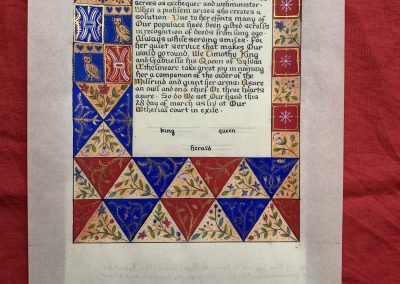 serves as exchequer and webminister.
When a problem arises she creates a
solution. Due to her efforts many of
Our populace have been gifted scrolls
in recognition of deeds from long ago.
Always while serving smiles. For
her quiet service that makes Our
world go round. We Timothy King
and Gabrielle his Queen of Sylvan
Æthelmearc take great joy in naming
her a companion of the order of the
Millrind and grant her arms: Azure
an owl and on a chief Or three hearts
azure. So do We set Our hand this
28 day of march as lv at Our
Æthereal court in exile.
King Queen
Herald